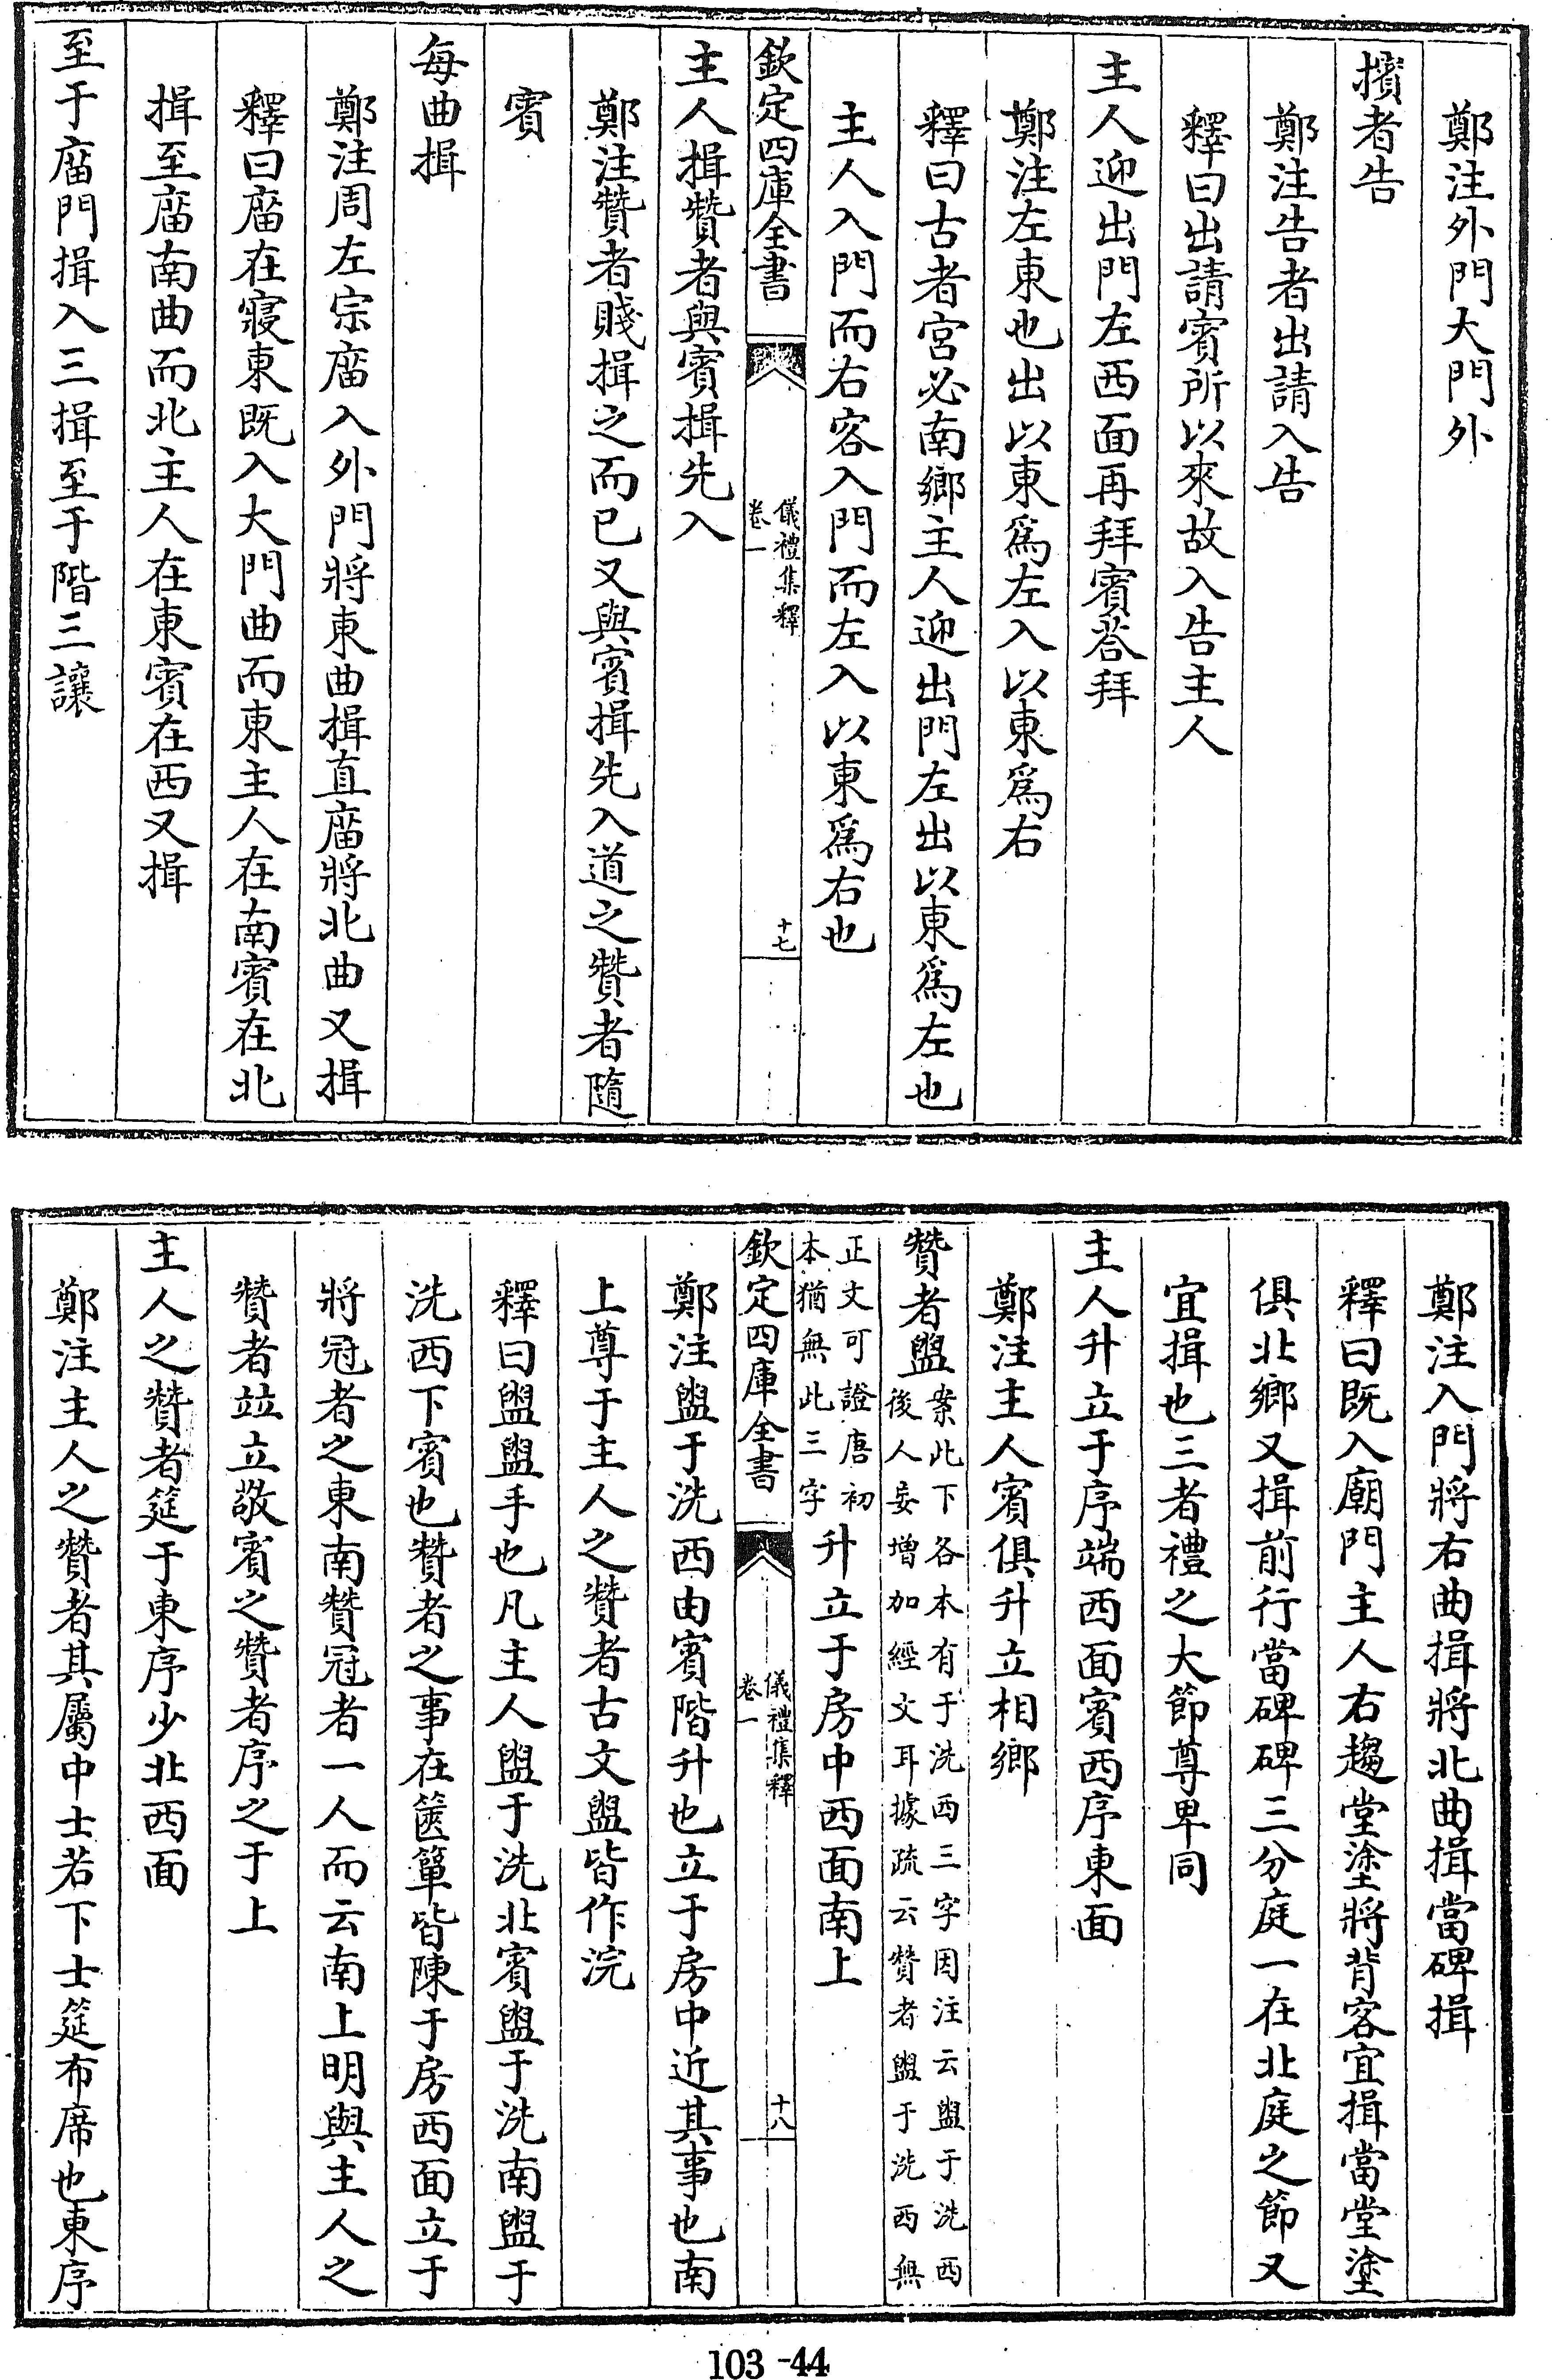 鄭注外門大門外
擯者告
鄭注告者出請入告
釋曰出請賓所以來故入告主人
主人迎出門左西面再拜賓荅拜
鄭注左東也出以東爲左入以東爲右
釋曰古者宮必南鄉主人迎出門左出以東爲左也
主人入門而右客入門而左入以東爲右也
欽定四庫全書
儀禮集釋
卷一
十七
主人揖贊者與賓揖先入
鄭注贊者賤揖之而已又與賓揖先入道之贊者隨
賓
每曲揖
鄭注周左宗庿入外門將東曲揖直庿將北曲又揖
釋曰庿在寢東既入大門曲而東主人在南賓在北
揖至庿南曲而北主人在東賓在西又揖
至于庿門揖入三揖至于階三讓
鄭注入門將右曲揖將北曲揖當碑揖
釋曰既入廟門主人右趨堂塗將背客宜揖當堂塗
俱北鄉又揖前行當碑碑三分庭一在北庭之節又
宜揖也三者禮之大節尊卑同
主人升立于序端西面賓西序東面
鄭注主人賓俱升立相鄉
贊者盥案此下各本有于洗西三字因注云盥于洗西
後人妄增加經文耳據疏云贊者盥于洗西無
正文可證唐初
本猶無此三字升立于房中西面南上
欽定四庫全書
儀禮集釋
卷一
十八
鄭注盥于洗西由賓階升也立于房中近其事也南
上尊于主人之贊者古文盥皆作浣
釋曰盥盥手也凡主人盥于洗北賓盥于洗南盥于
洗西下賓也贊者之事在篋簞皆陳于房西面立于
將冠者之東南贊冠者一人而云南上明與主人之
贊者竝立敬賓之贊者序之于上
主人之贊者筵于東序少北西面
鄭注主人之贊者其屬中士若下士筵布席也東序
103-44